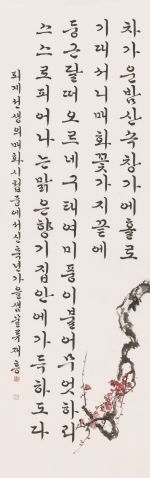 차가운 밤 산속 창가에 홀로
기대서니 매화꽃 가지 끝에
둥근달 떠오르네 구태여 미풍이 불어 무엇하리
스스로 피어나는 맑은 향기 집안에 가득하도다
퇴계선생의 매화시첩 중에서 신축년 가을 샘물